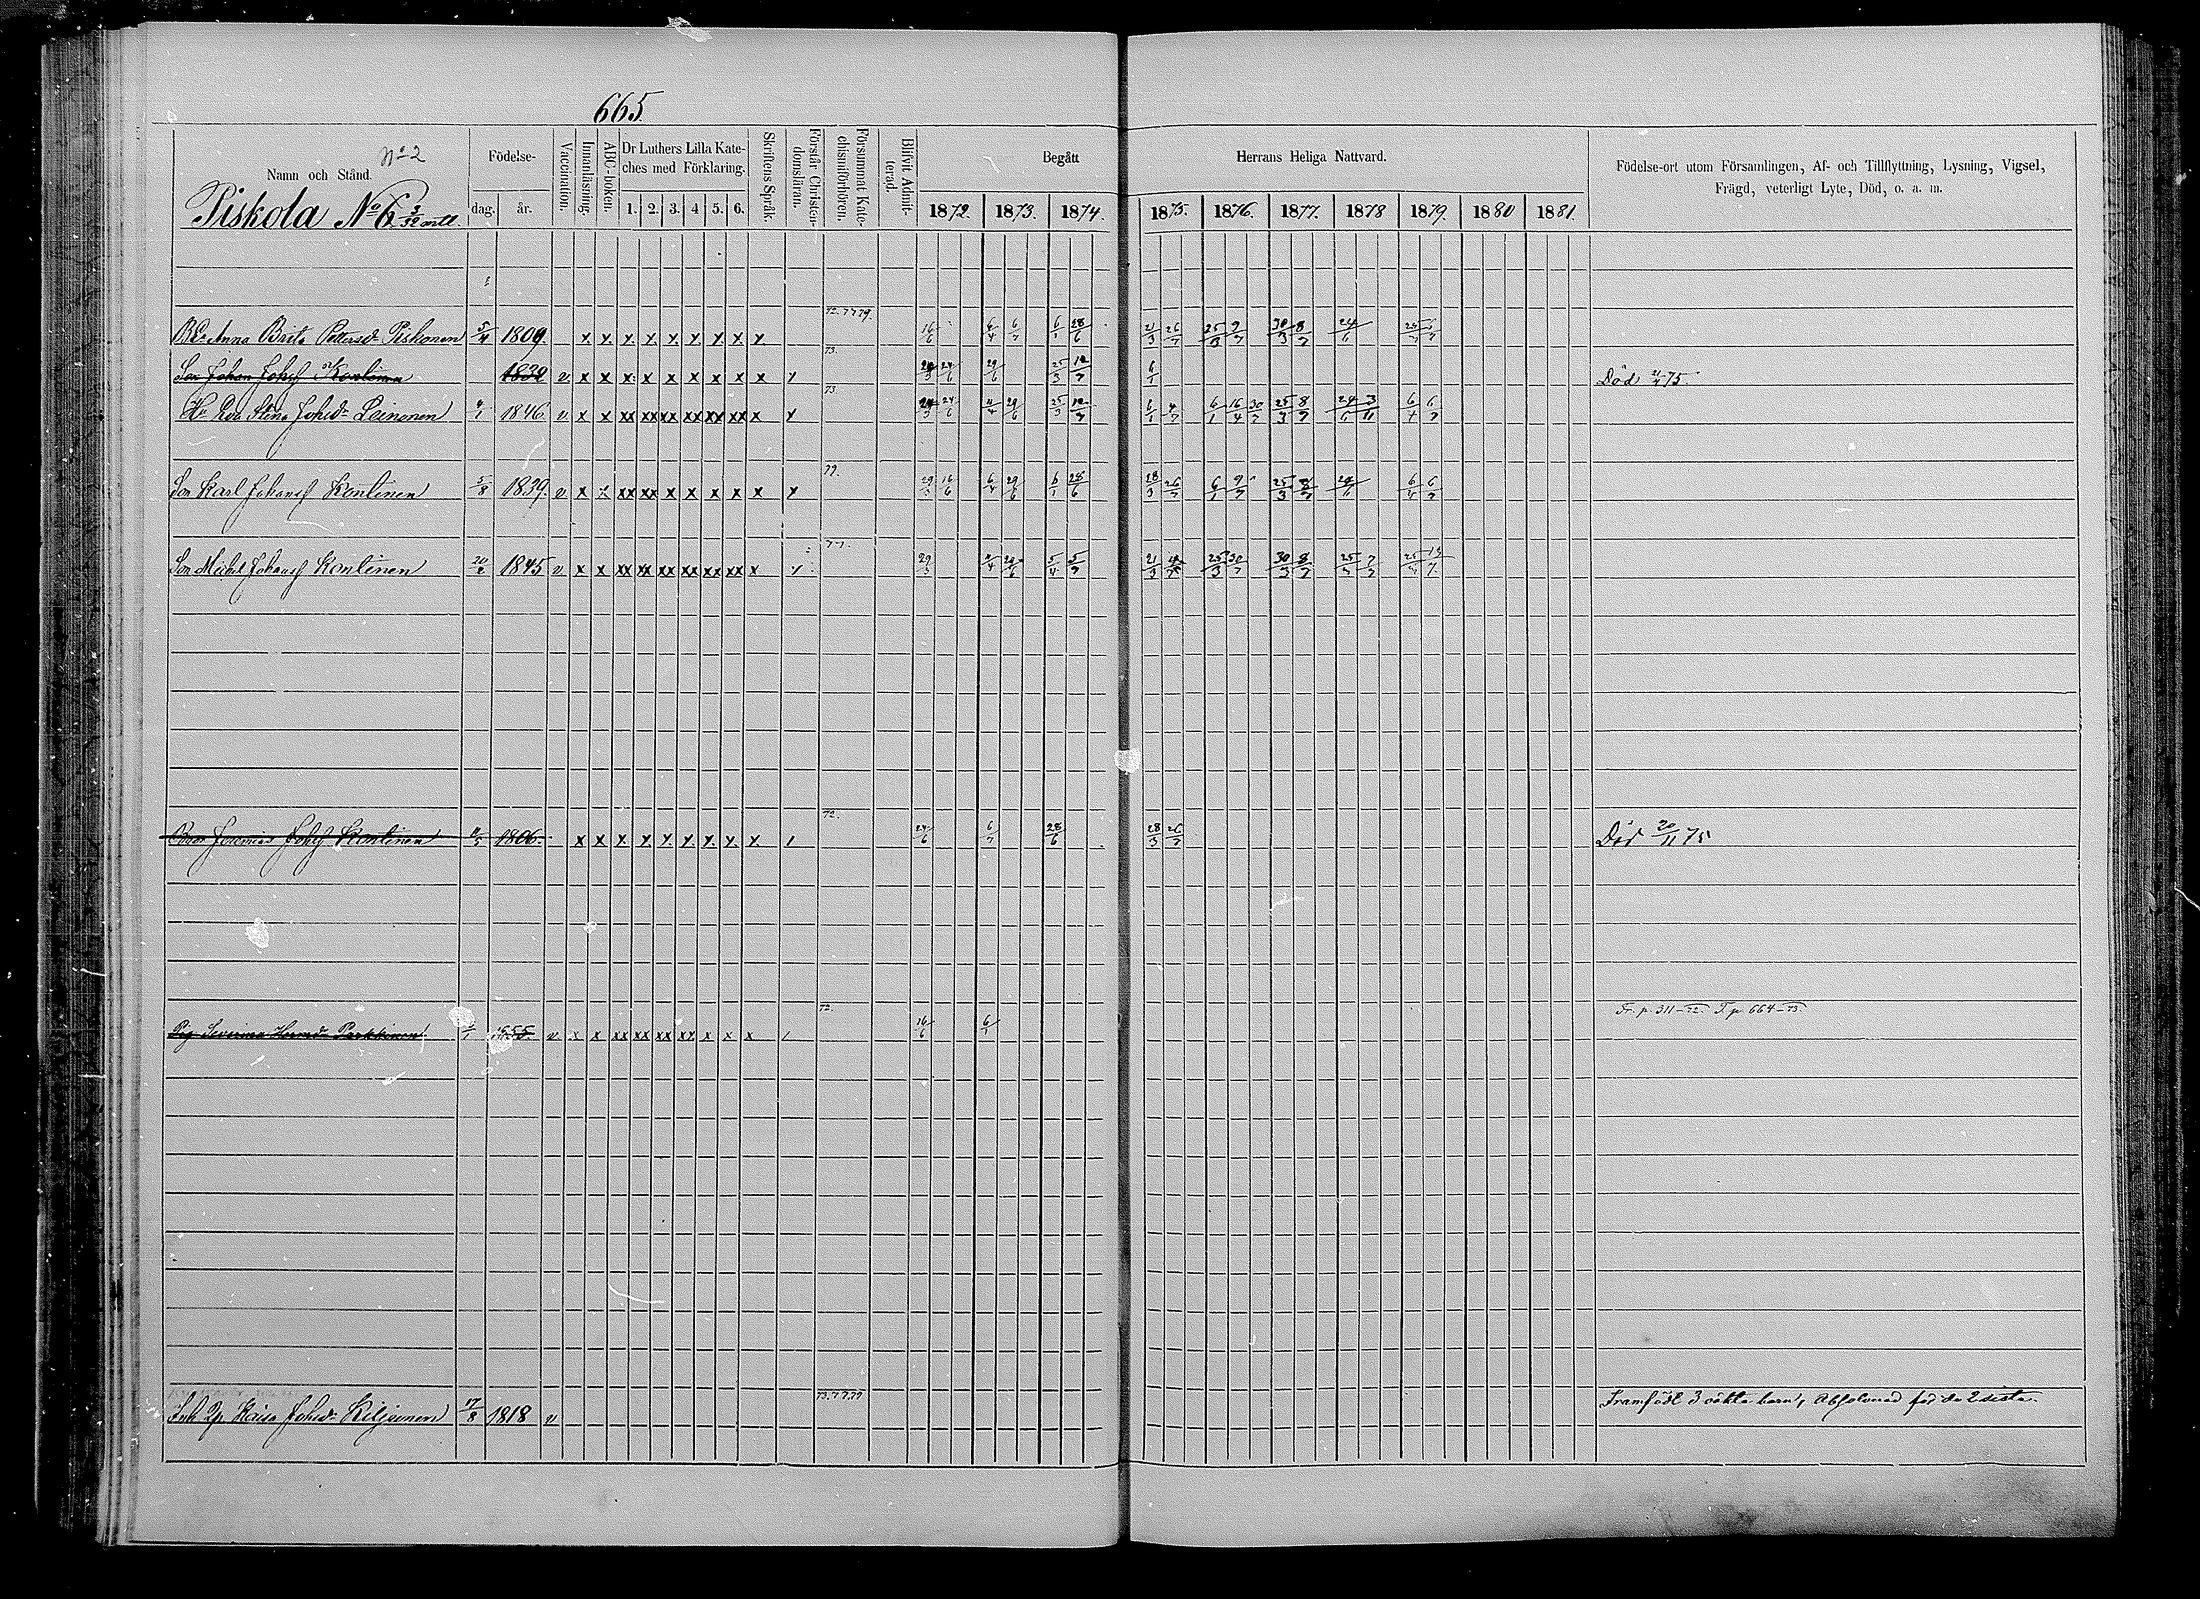 665.
Namn och Stånd.
No 2
Piskola No 6 3/32 mtl.
Födelse-
dag. år.
Vaccination.
Innanläsning.
ABC-boken.
Dr Luthers Lilla Kate-
ches med Förklaring.
1. 2. 3. 4 5. 6.
Skriftens Språk.
Förstår Christen-
domsläran.
Försummat Kate-
chismiförhören.
Blifvit Admit-
terad.
Begått Herrans Heliga Nattvard.
1872. 1873. 1874 1875. 1876. 1877. 1878 1879. 1880 1881.
Födelse-ort utom Församlingen, Af- och Tillflyttning, Lysning, Vigsel,
Frägd, veterligt Lyte, Död, o. a. m.
Anna Brita Pettersdr Piskonen 5/4 1809. x x x x x x x x x 72.7779. 16/6 6/4 6/7 6/1 28/6 21/3 26/7 25/3 9/7 30/3 8/7 24/6
Son Johan Johsf Kontinen 1832 v x x x x x x x x x 73. 24/6 29/6 25/3 12/7 6/1 Död 21/4 75.
Hu Eva Stina Johsdr Leinonen 4/1 1846. v x x xx xx xx xx xx xx x 73 24/6 4/4 29/6 25/3 12/7 6/1 4/7 6/1 16/4 30/7 25/3 8/7 6/4 6/7
Son Karl Johansf Kontinen 5/8 1839. v x x xx xx x x x x x x 79. 29/3 16/6 6/4 29/6 6/1 28/6 28/3 26/7 6/1 9/7 25/3 8/7 24/6 6/4 6/7
Son Mickel Johansf Kontinen 1845 v x x xx xx xx xx xx xx x 77. 29/3 4/4 5/4 5/7 21/3 25/3 30/7 30/3 8/7
Bror Jeremias Johsf Kontinen 1806. x x x x x x x x x 72. 24/6 6/7 28/6 28/3 26/7 Död 20/11 75
Pig Severina Parkkinen 1855. v x x xx xx xx xx x x x 72. 16/6 6/1 Fr. p. 311-72. T. p. 664-73.
Inh Kaisa Johsdr Kiljunen 17/8 1818 v 73.7779 Framfödt 3 oäkta barn, Absolverad för de 2 sista.